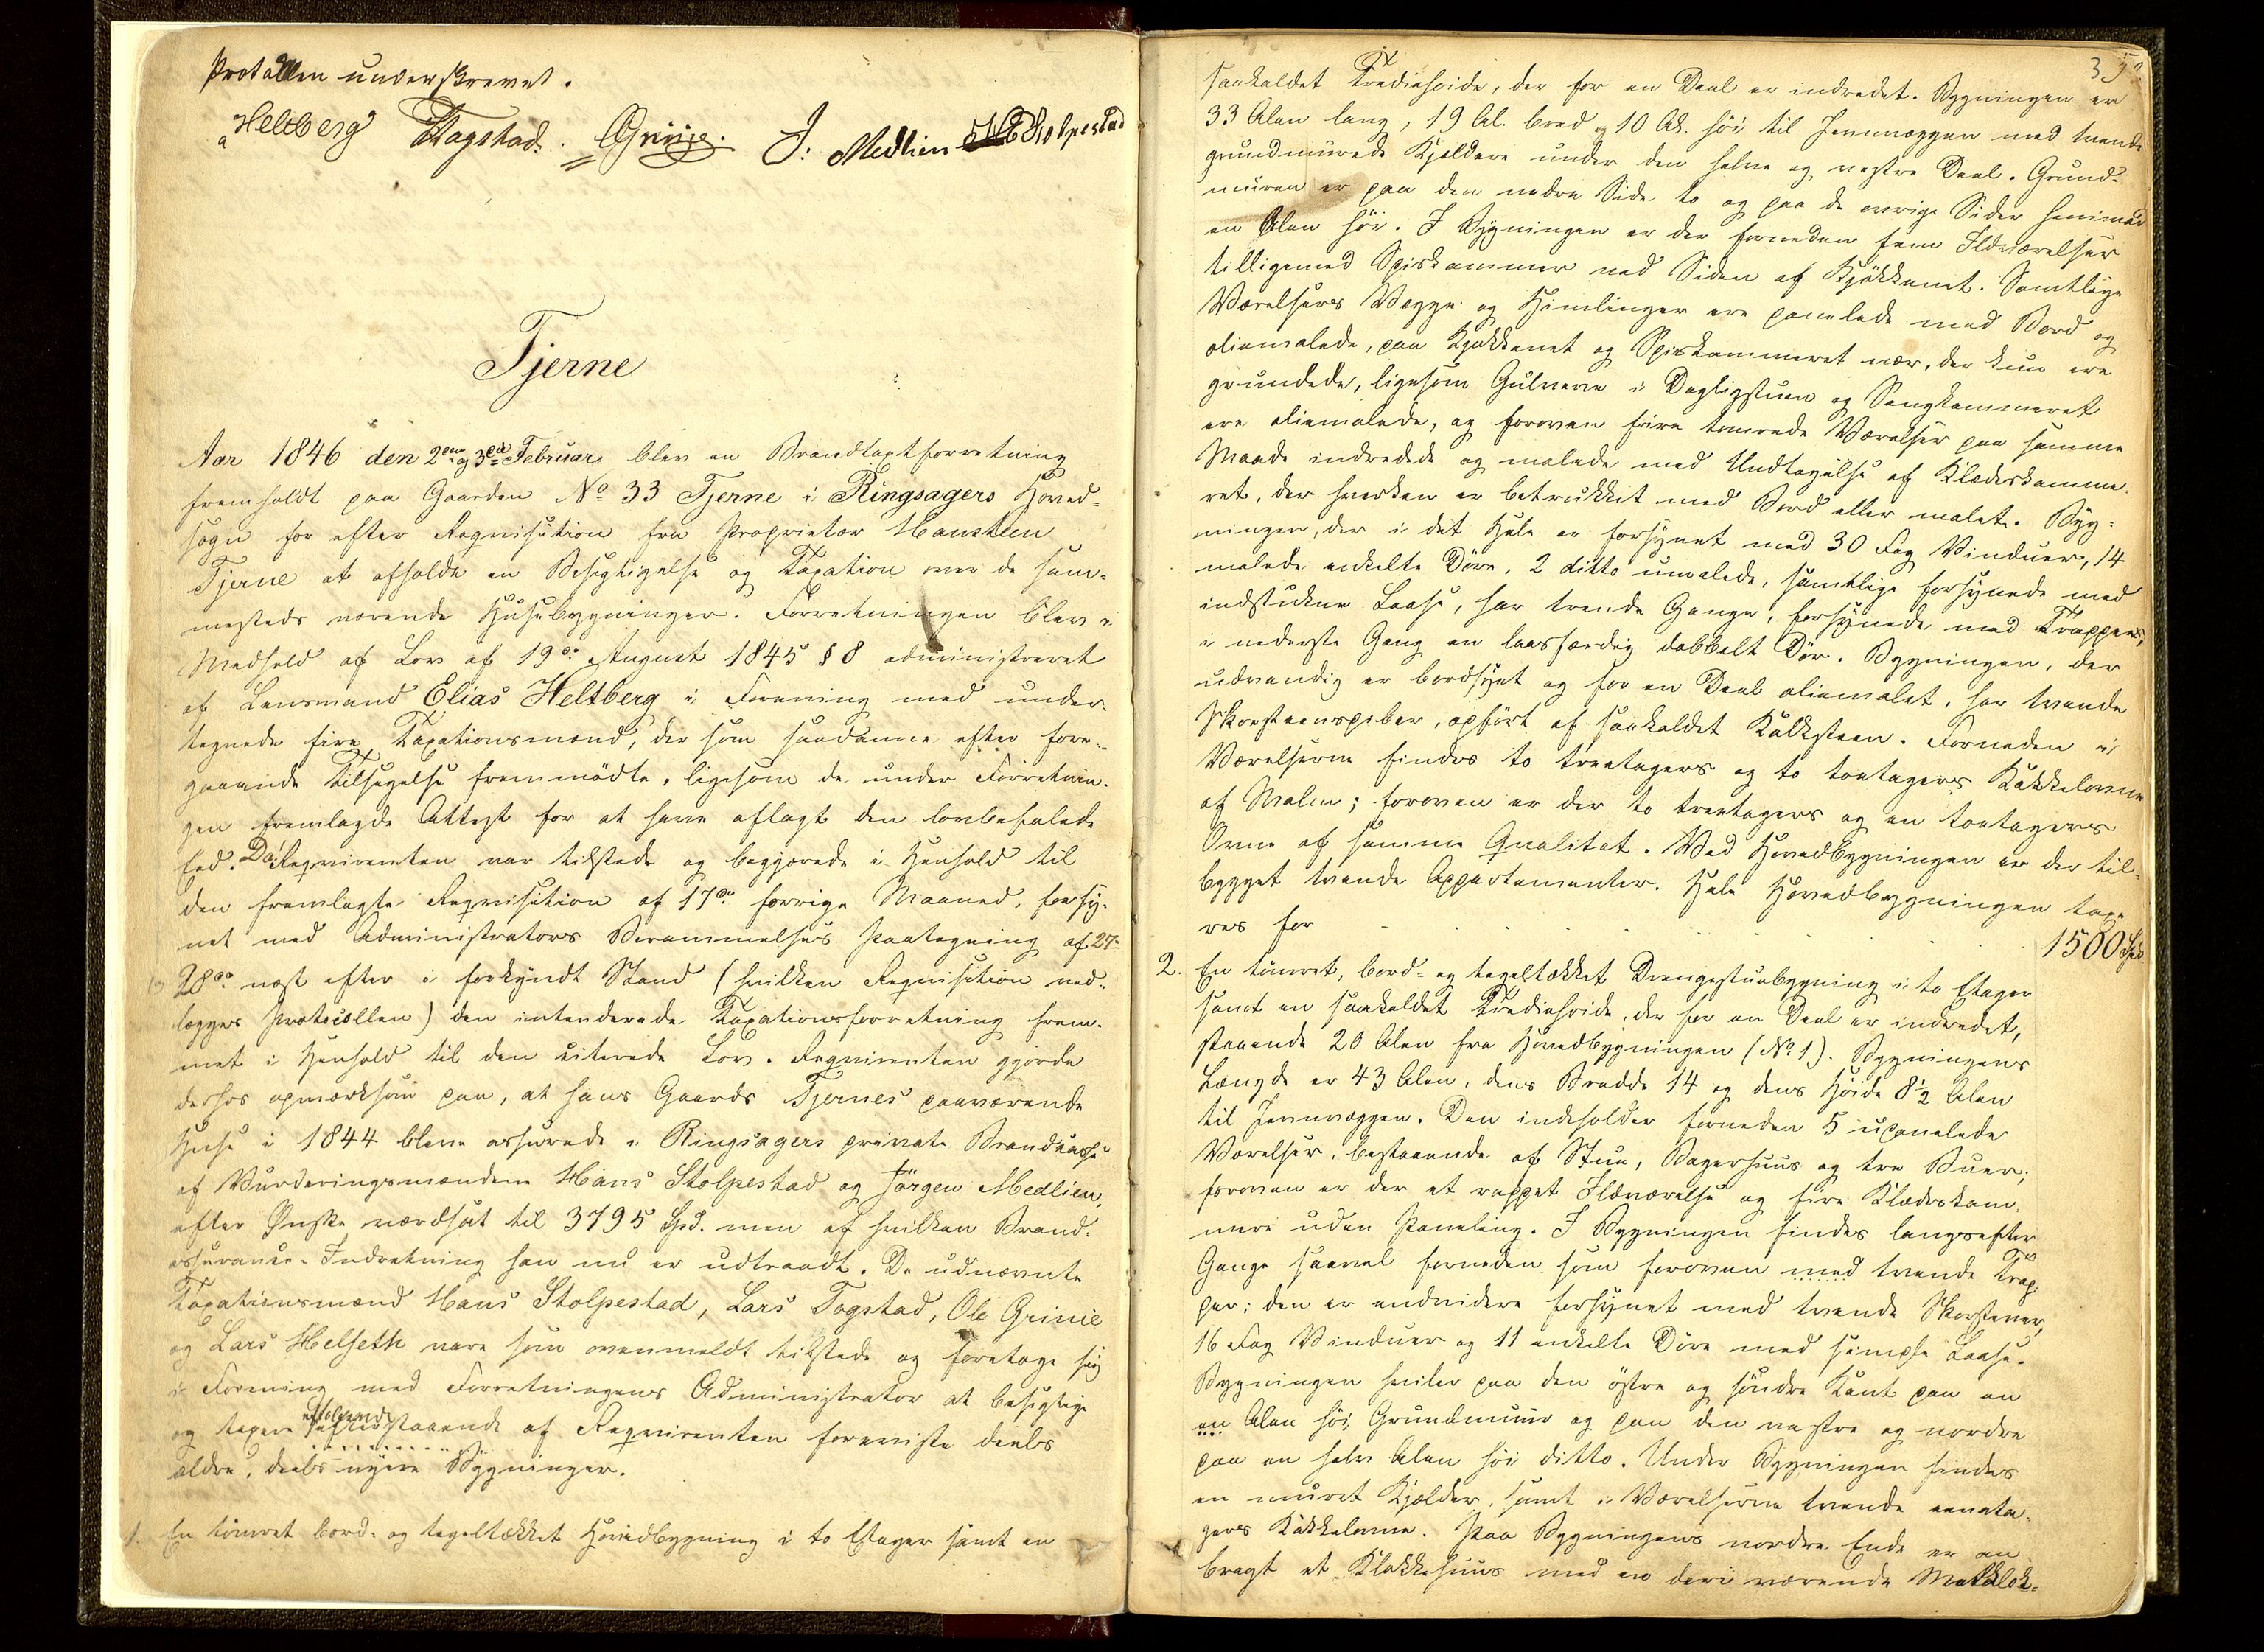 Protocollen underskrevet.
Heltberg Tagstad. Grinie. J: Medlien Stolpestad
Tjerne
Aar 1846 den 2den og 3die Februar blev en Brandtaxtforretning
fremholdt paa Gaarden No 33 Tjerne i Ringsagers Hoved-
sogn for efter Reqvisition fra Proprietær Hansteen
Tjerne at afholde en Besigtigelse og Taxation over de sam-
mesteds værende Huusebygninger. Forretningen blev i
Medhold af Lov af 19de August 1845 § 8 administreret
af Lensmand Elias Heltberg i Forening med under-
tegnede fire Taxationsmænd, der som saadanne efter fore-
gaaende Tilsigelse fremmødte, ligesom de under Forretnin-
gen fremlagde Attest for at have aflagt den lovbefalede
Eed. Da Reqvirenten var tilstede og begjærede i Henhold til
den fremlagte Reqvisition af 17de forrige Maaned, forsy-
net med Administrators Berammelses Paategning af 27-
og 28de næst efter i forkyndt Stand (hvilken Reqvisition ved-
lægges Protocollen) den intenderede Taxationsforretning frem-
met i Henhold til den citerede Lov. Reqvirenten gjorde
derhos opmærksom paa, at hans Gaards Tjernes paaværende
Huse i 1844 bleve assurede i Ringsagers private Brandkasse
af Vurderingsmændene Hans Stolpestad og Jörgen Medlien,
efter Ønske værdsat til 3795 Spd. men af hvilken Brand-
assurance-Indretning han nu er udtraadt. De udnævnte
Taxationsmænd Hans Stolpestad, Lars Togstad, Ole Grinie
og Lars Helseth vare som ovenmeldt tilstede og foretoge sig
i Forening med Forretningens Administrator at besigtige
og taxere efterfølgende af Reqvirenten foreviste deels
ældre, deels nyere Bygninger.
1. En tömret bord- og tegeltækket Hovedbygning i to Etager samt en
35
saakaldet Trediehøide, der for en Deel er indredet. Bygningen er
33 Alen lang, 19 Al. bred og 10 Al. höi til Jevnvæggen med tvende
grundmurede Kjældere under den halve og vestre Deel. Grund-
muren er paa den nedre Side to og paa de øvrige Sider henimod
en Alen höi. I Bygningen er der forneden fem Ildværelser
tilligemed Spiskammer ved Siden af Kjökkenet. Samtlige
Værelsers Vægge og Himlinger ere panelede med Bord og
oliemalede, paa Kjøkkenet og Spiskammeret nær, der kun ere
grundede, ligesom Gulvene i Dagligstuen og Sengkammeret
ere oliemalede, og foroven fire tömrede Værelser paa samme
Maade indredede og malede med Undtagelse af Klædeskamme-
ret, der hverken er betrukket med Bord eller malet. Byg-
ningen, der i det Hele er forsynet med 30 Fag Vinduer, 14
malede enkelte Döre, 2 ditto umalede, samtlige forsynede med
indstukne Laase, har tvende Gange, forsynede med Trapper,
i nederste Gang en laasfærdig dobbelt Dör. Bygningen, der
udvendig er bordsynt og for en Deel oliemalet, har tvende
Skorsteenspiber, opfört af saakaldet Kalksteen. Forneden i
Værelserne findes to treetagers og to toetagers Kakkelovne
af Malm; foroven er der to treetagers og en toetagers
Ovne af samme Qvalitet. Ved Hovedbygningen er der til-
bygget tvende Appartementer. Hele Hovedbygningen taxe-
res for . . . . . 1500 Spd
2. En tömret, bord- og tegeltækket Drengestuebygning i to Etager
samt en saakaldet Trediehøide, der for en Deel er indredet,
staaende 20 Alen fra Hovedbygningen (No 1). Bygningens
Længde er 43 Alen, dens Bredde 14 og dens Höide 8½ Alen
til Jevnvæggen. Den indeholder forneden 5 upanelede
Værelser, bestaaende af Stue, Bagerhuus og tre Buer;
foroven er der et rappet Ildværelse og fire Klædeskam-
mere uden Paneling. I Bygningen findes langsefter
Gange saavel forneden som foroven med tvende Trap-
per; den er endvidere forsynet med tvende Skorstener,
16 Fag Vinduer og 11 enkelte Döre med simple Laase.
Bygningen hviler paa den östre og söndre Kant paa en
en Alen höi Grundmuur og paa den vestre og nordre
paa en halv Alen höi ditto. Under Bygningen findes
en muret Kjælder, samt i Værelserne tvende eeneta-
gers Kakkelovne. Paa Bygningens nordre Ende er an-
bragt et Klokkehuus med en deri værende Malmklok-